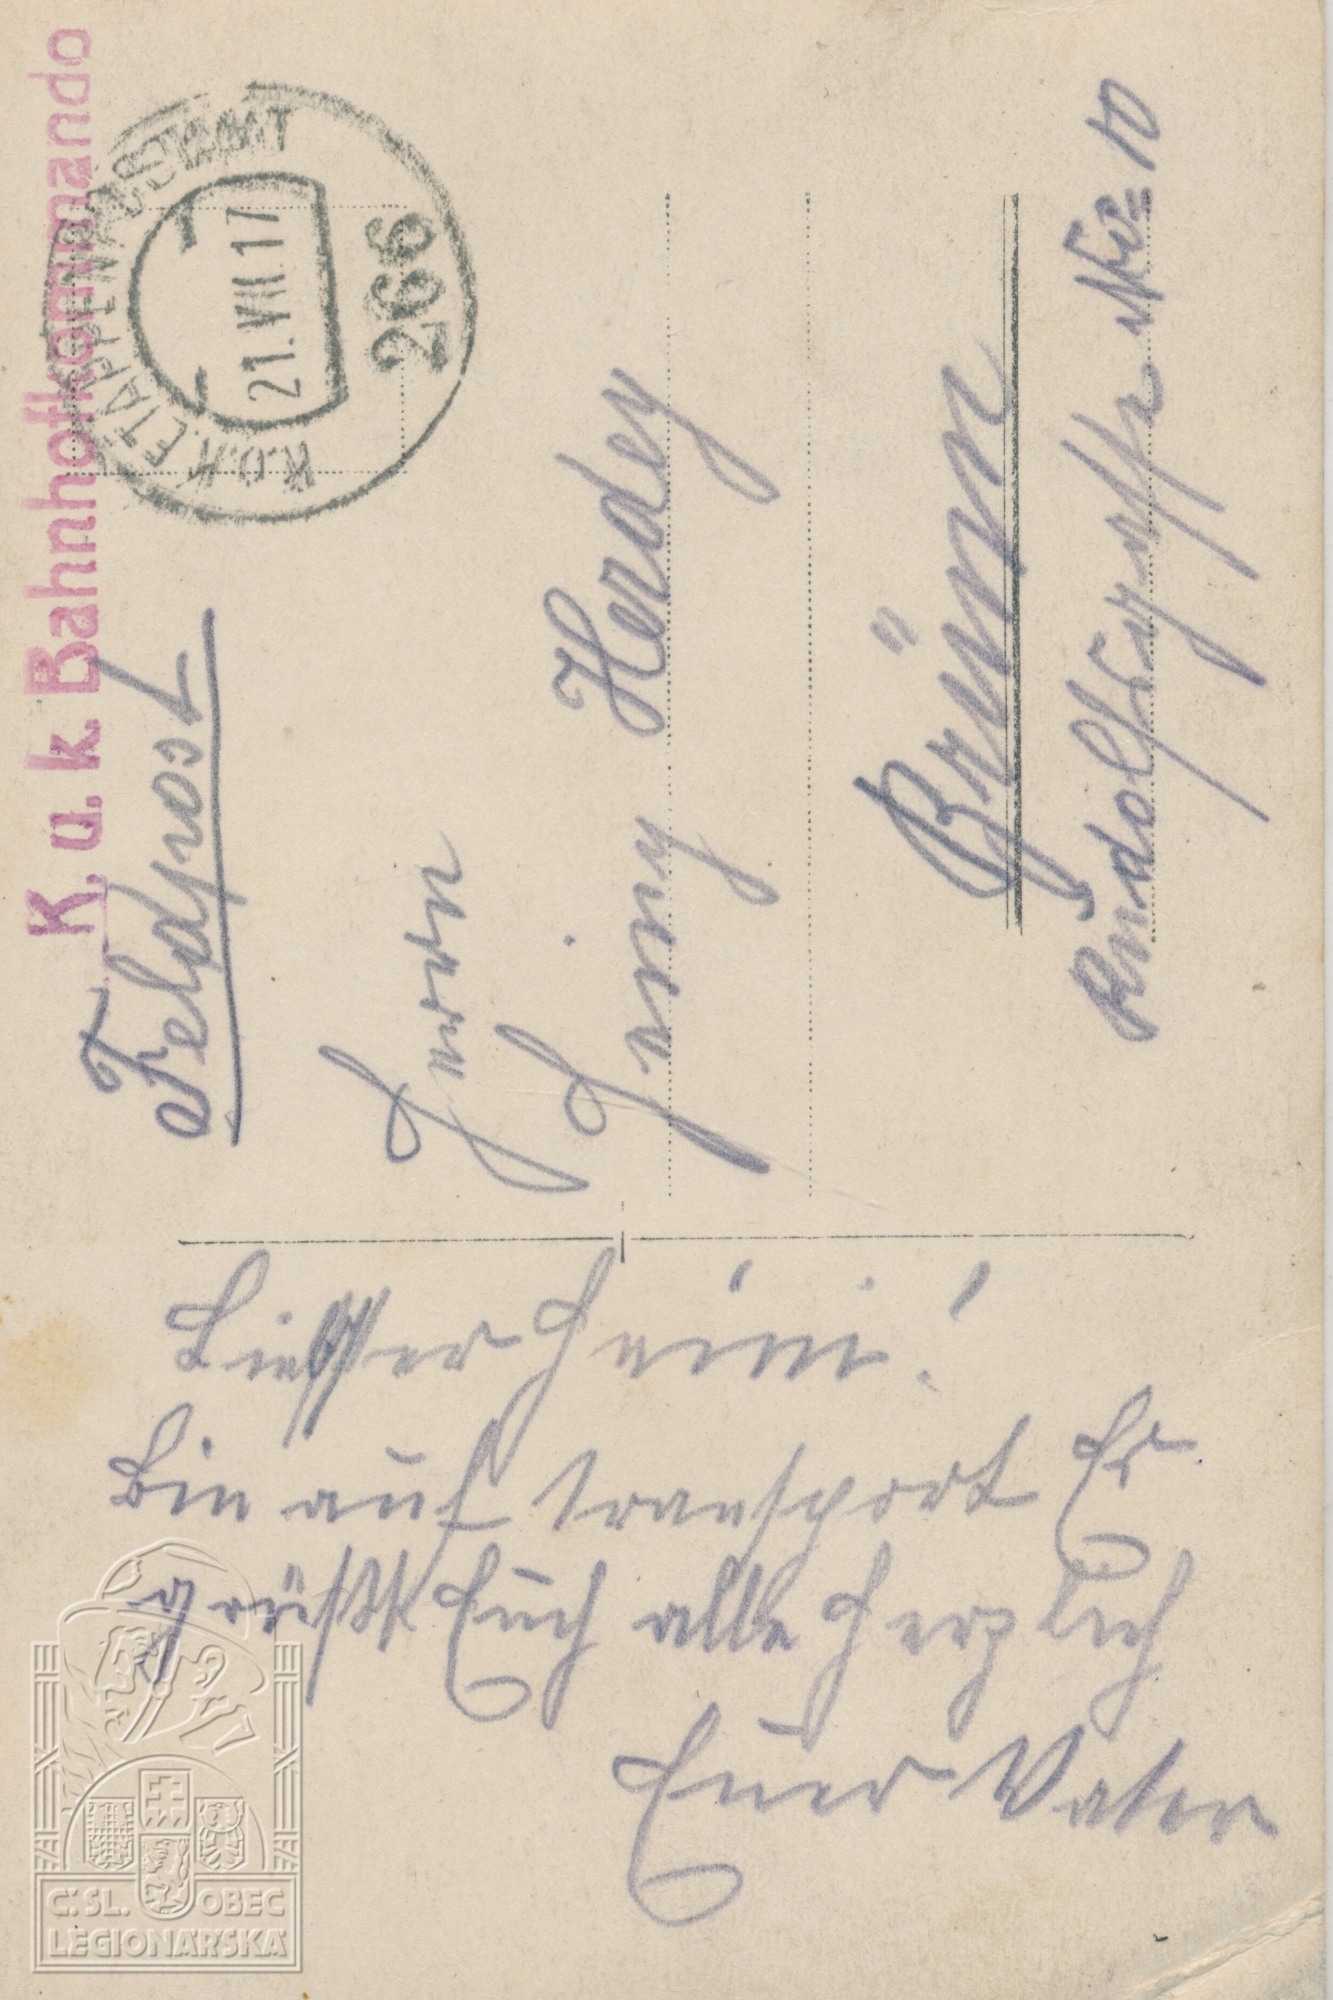 K. u. k. Bahnhofkommando
K.U.K. ETAPPENPOSTAMT
21. VIII. 17
266
Feldpost
Herrn
Heiny Herdey
Brünn
Rudolfsgasse Nro 10
Lieber Heini!
Bin auf transport Es
grüßt Euch alle herzlich
Euer Vater
Č. SL. OBEC
LEGIONÁŘSKÁ